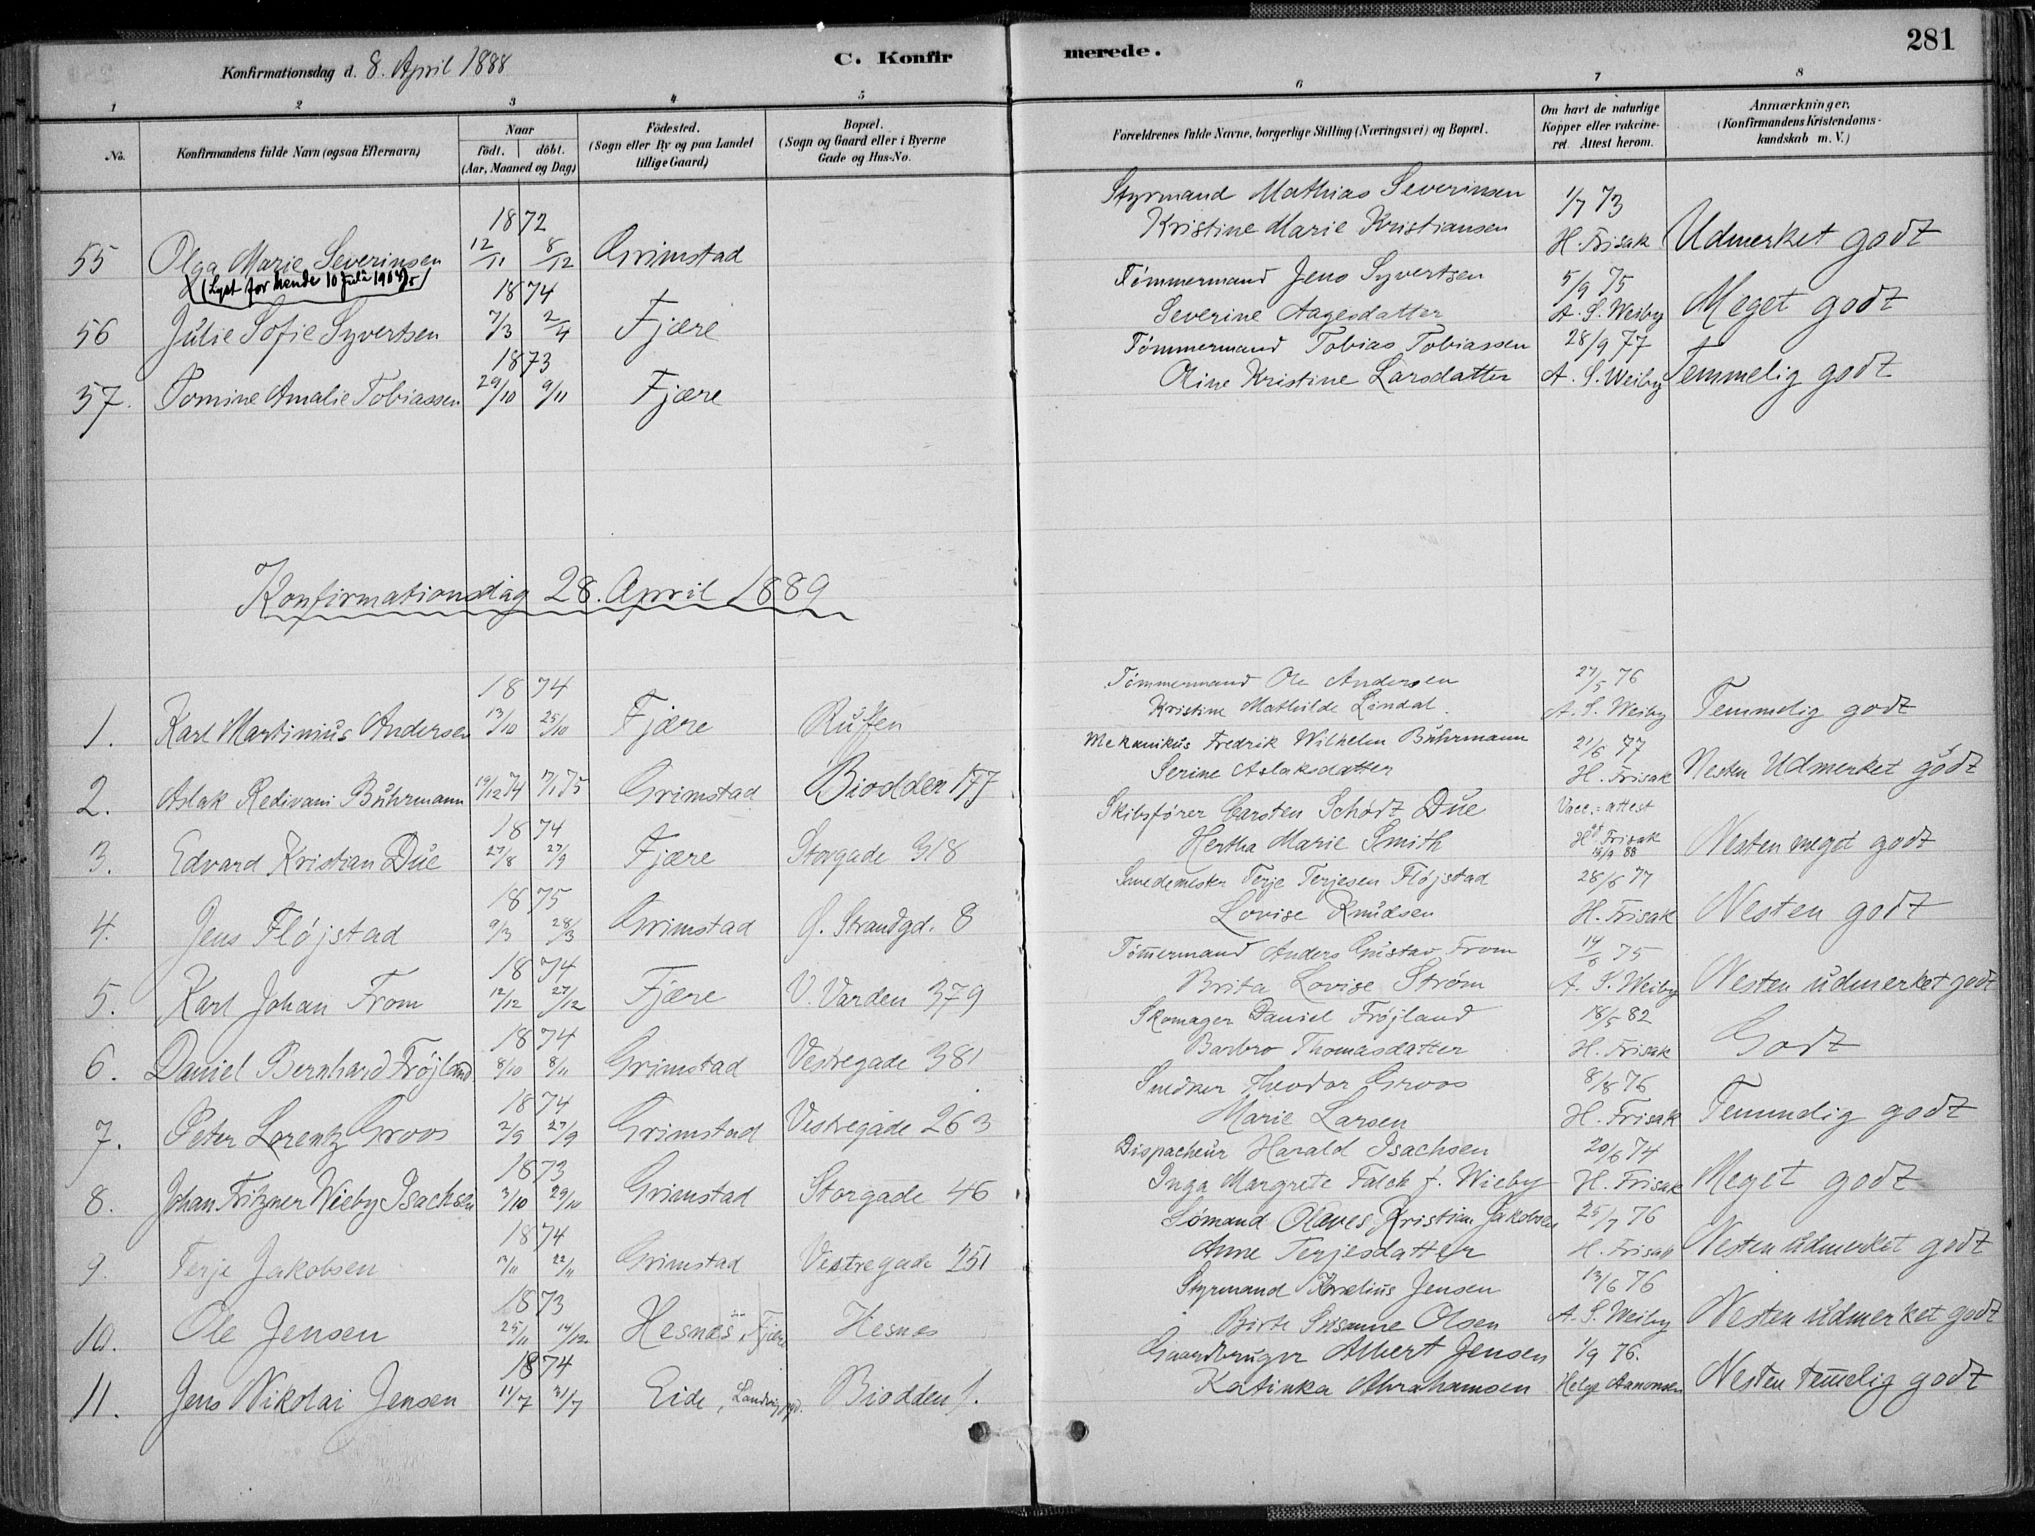 281
Konfirmationsdag d. 8. April 1888
C. Konfirmerede.
1 2 3 4 5 6 7 8
No.
Konfirmandens fulde Navn (ogsaa Efternavn)
Naar
födt. döbt.
(Aar, Maaned og Dag)
Födested.
(Sogn eller By og paa Landet
tillige Gaard)
Bopæl.
(Sogn og Gaard eller i Byerne
Gade og Hus-No.
Forældrenes fulde Navne, borgerlige Stilling (Næringsvei) og Bopæl.
Om havt de naturlige
Kopper eller vakcine-
ret. Attest herom.
Anmærkninger.
(Konfirmandens Kristendoms-
kundskab m. V.)
Styrmand Mathias Severinsen 1/7 73
1872 Kristine Marie Kristiansen
55 Olga Marie Severinsen 12/11 8/12 Grimstad H. Frisak Udmerket godt
(Lyst for hende 10 Juli 1905)
1874 Tømmermand Jens Syvertsen 5/9 75
56 Julie Sofie Syvertsen 7/3 2/4 Fjære Severine Aagesdatter A. S. Weiby Meget godt
1873 Tømmermand Tobias Tobiassen 28/9 77
57. Tomine Amalie Tobiassen 29/10 9/11 Fjære Oline Kristine Larsdatter A. S. Weiby Temmelig godt
Konfirmationsdag 28. April 1889
1874 Tømmermand Ole Andersen 27/5 76
1. Karl Martinius Andersen 13/10 25/10 Fjære Rutten Kristine Mathilde Lindal. A. S. Weiby Temmelig godt
Mekanikus Fredrik Wilhelm Buhrmann 21/6 77
2. Aslak Redivani Buhrmann 19/12 74 17/1 75 Grimstad Biodden 177 Serine Aslaksdatter H. Frisak Nesten Udmerket godt
1874 Skibsfører Carsten Schødt Due Vacc.=attest
3. Edvard Kristian Due 27/8 27/9 Fjære Storgade 318 Hertha Marie Smith H. Frisak 18/9 88 Nesten meget godt
1875 Smedemester Terje Terjesen Fløjstad 28/6 77
4. Jens Fløjstad 9/3 28/3 Grimstad Ø. Strandgd. 8 Lovise Knudsen H. Frisak Nesten godt
1874 Tømmermand Anders Gustav From 14/6 75
5. Karl Johan From 12/12 27/12 Fjære V. Varden 379 Brita Lovise Strøm A. S. Weiby Nesten udmerket godt
1874 Skomager Daniel Frøjland 18/5 82
6. Daniel Bernhard Frøjland 8/10 8/11 Grimstad Vestregade 381 Barbro Thomasdatter H. Frisak Godt
1874 Snedker Theodor Groos 8/8 76
7. Peter Lorentz Groos 2/9 27/9 Grimstad Vestregade 263 Marie Larsen H. Frisak Temmelig godt
1873 Dispacheur Harald Isachsen 20/6 74
8. Johan Fritzner Wieby Isachsen 3/10 29/10 Grimstad Storgade 46 Inga Margrete Falch f. Wieby H. Frisak Meget godt
1874 Sømand Olaves Kristian Jakobsen 25/7 76
9. Terje Jakobsen 22/11 Grimstad Vestregade 251 Anne Terjesdatter H. Frisak Nesten udmerket godt
1873 Styrmand Kornelius Jensen 13/6 76
10. Ole Jensen 25/11 14/12 Hesnes, Fjære Hesnes Birte Susanne Olsen A. S. Weiby Nesten udmerket godt
1874 Gaardbruger Albert Jensen 1/9 76.
11. Jens Nikolai Jensen 11/7 31/7 Eide, Landvig Biodden Katinka Abrahamsen Helge Aanonsen Nesten temmelig godt